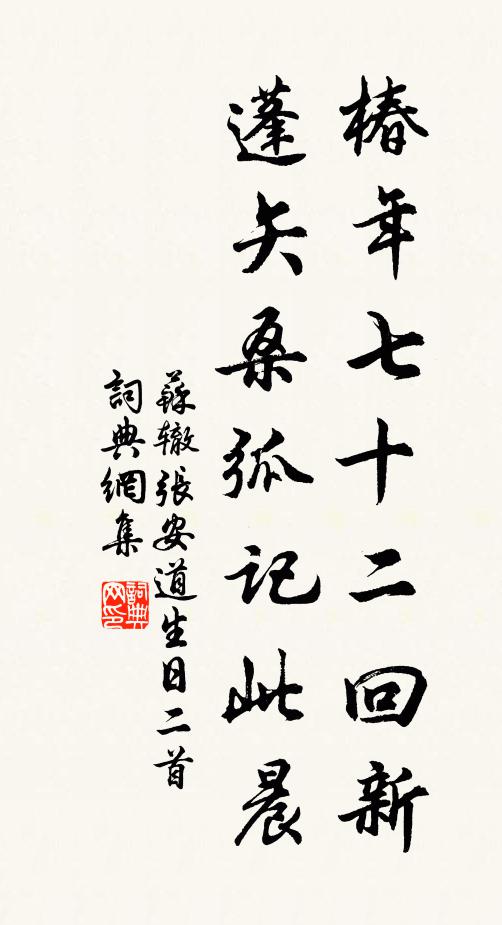 椿年七十二回新
蓬矢桑弧記此晨
蘇轍張安道生日二首
詞典網集
詞典網印